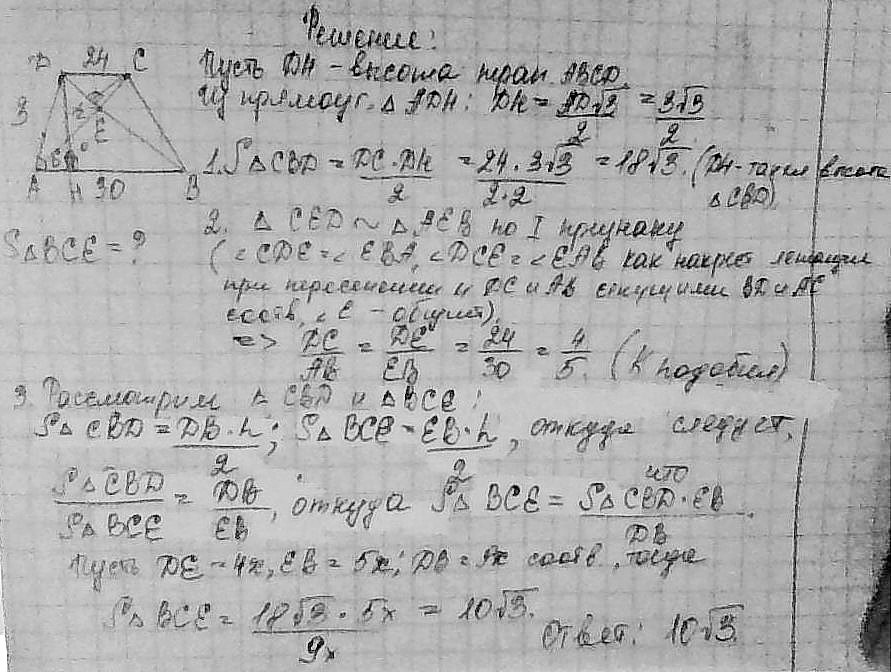 Решение:
D 24 C
Пусть DH - высота трап. ABCD.
Из прямоуг. △ ADH: DH = AD√3/2 = 3√3/2
3
E
A H 30 B
1. S△CBD = DC·DH/2 = 24·3√3/2·2 = 18√3. (DH - также высота △CBD).
2. △ CED ~ △ AEB по I признаку
S△BCE = ?
(∠CDE = ∠EBA, ∠DCE = ∠EAB как накрест лежащие
при пересечении DC и AB секущими BD и AC
соств, ∠E - общий),
=> DC/AB = DE/EB = 24/30 = 4/5. (К подобия)
3. Рассмотрим △ CBD и △BCE:
S△CBD = DB·h/2; S△BCE = EB·h/2, откуда следует, что
S△CBD/S△BCE = DB/EB, откуда S△BCE = S△CBD·EB/DB.
Пусть DE = 4x, EB = 5x; DB = 9x соств, тогда
S△BCE = 18√3·5x/9x = 10√3.
Ответ: 10√3.